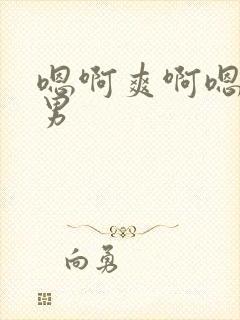 嗯啊爽啊嗯
男
向勇